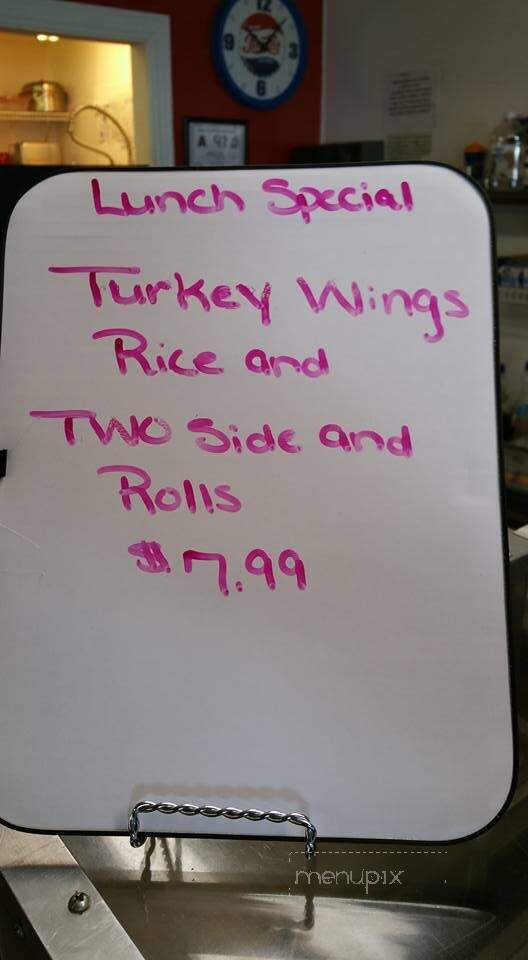 12
9
3
6
A 97.0
Lunch Special
Turkey Wings
Rice and
TWO Side and
Rolls
$7.99
menupix